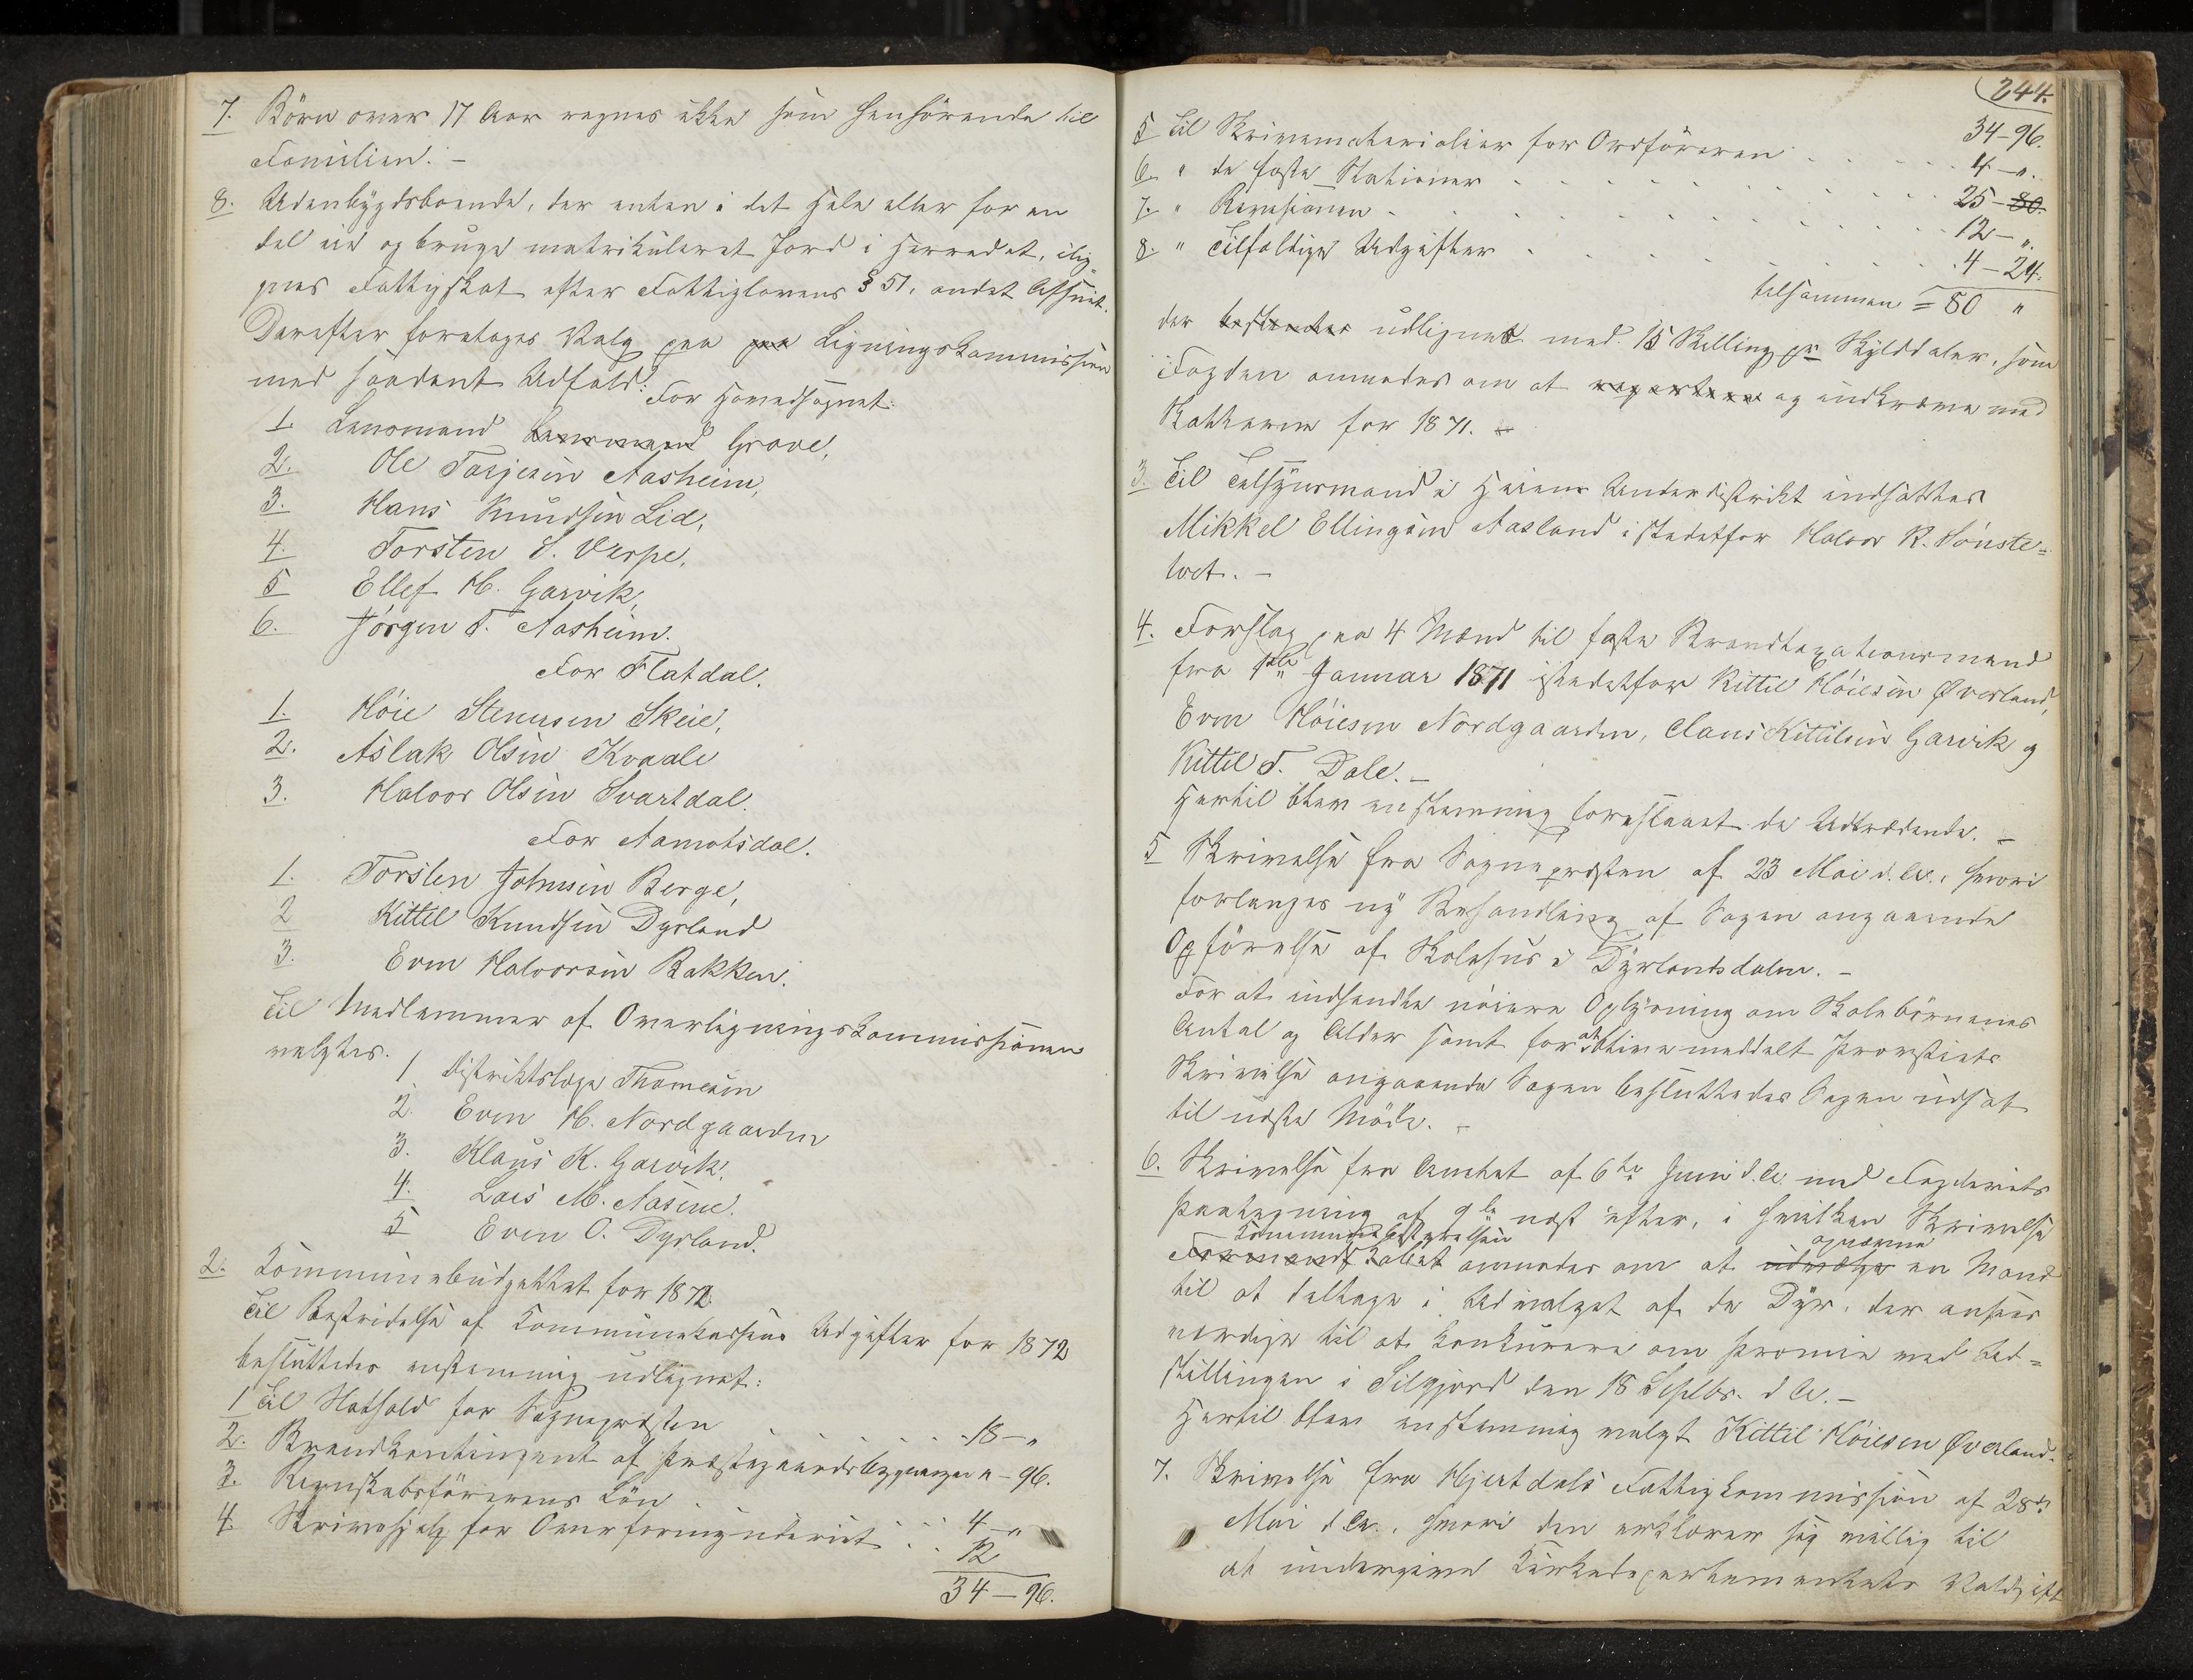 7. Börn over 17 Aar regnes ikke som henhörende til
Familien. –
8. Udenbygdsboende, der enten i det Hele eller for en
del eie og bruge matrikuleret Jord i Herredet, ilig-
nes Fattigskat efter Fattiglovens § 51, andet Afsnit.
Derefter foretoges Valg paa paa Ligningskommission
med saadant Udfald:
For Hovedsognet:
1. Lensmand Lensmand Grave,
2. Ole Tarjesen Aasheim,
3. Hans Knudsen Lid,
4. Torsten S. Verpe,
5 Ellef H. Garvik,
6. Jörgen T. Aasheim.
For Flatdal.
1. Höie Stenusen Skeie,
2. Aslak Olsen Kvaale
3. Halvor Olsen Svartdal.
For Aamotsdal.
1. Torsten Johnsen Berge,
2 Kittil Knudsen Dyrland
3. Even Halvorsen Bakken.
Til Medlemmer af Overligningskommissionen
valgtes.
1 Distriktslæge Thomesen
2. Even H. Nordgaarden
3. Klaus K. Garvik,
4. Lars M. Aasene.
5 Even O. Dyrland.
2. Kommunebudgettet for 1872.
Til Bestridelse af Kommunekassens Udgifter for 1872
besluttedes enstemmig udlignet:
1 Til Hothold for Sognepresten . . . . 18 – "
2. Brandkontingent af Præstegaardsbygninger " – 96.
3. Regnskabsförerens Lön . . . 4 – "
4. Skrivehjelp for Overformynderiet . . . 12
34 – 96.
244.
34 – 96.
5 Til Skrivematerialier for Ordföreren . . . . 4 – ".
6. " de faste Stationer . . . . 25 – 80.
7. " Revisionen . . . . 12 – ".
8. " Tilfeldige Udgifter . . . . 4 – 24.
tilsammen = 80 "
der besluttedes udlignet med 15 Skilling pr Skylddaler, som
Fogden anmodes om at repartere og indkræve med
Skatterne for 1871.
3. Til Tilsynsmand i Heiens Underdistrikt indsattes
Mikkel Ellingsen Aasland i stedetfor Halvor R. Sönste-
tvet. –
4. Forslag paa 4 Mænd til faste Brandtaxationsmænd
fra 1ste Januar 1871 istedetfor Kittil Höiesen Øverland,
Even Höiesen Nordgaarden, Claus Kittilsen Garvik og
Kittil T. Dale. –
Hertil blev enstemmig foreslaaet de Udtrædende. –
5 Skrivelse fra Sognepræsten af 23 Mai d. A., hvori
forlanges ny Behandling af Sagen angaaende
Opförelse af Skolehus i Dyrlandsdalen. –
For at indhente nöiere Oplysning om Skolebörnenes
Antal og Alder samt for at blive meddelt Provstiets
Skrivelse angaaende Sagen besluttedes Sagen udsat
til næste Möde. –
6. Skrivelse fra Amtet af 6te Juni d. A. med Fogderiets
Paategning af 9de næst efter, i hvilken Skrivelse
Kommunebestyrelsen opnævne
Formandskabet anmodes om at udvælge en Mand
til at deltage i Udvalget af de Dyr, der ansees
værdige til at konkurere om Præmie ved Ud-
stillingen i Siljord den 18 Septbr. d A. –
Hertil blev enstemmig valgt Kittil Höiesen Øverland.
7. Skrivelse fra Hjertdals Fattigkommission af 28de
Mai d A., hvori den erklærer sig villig til
at undergive Kirkedepartementets Voldgift